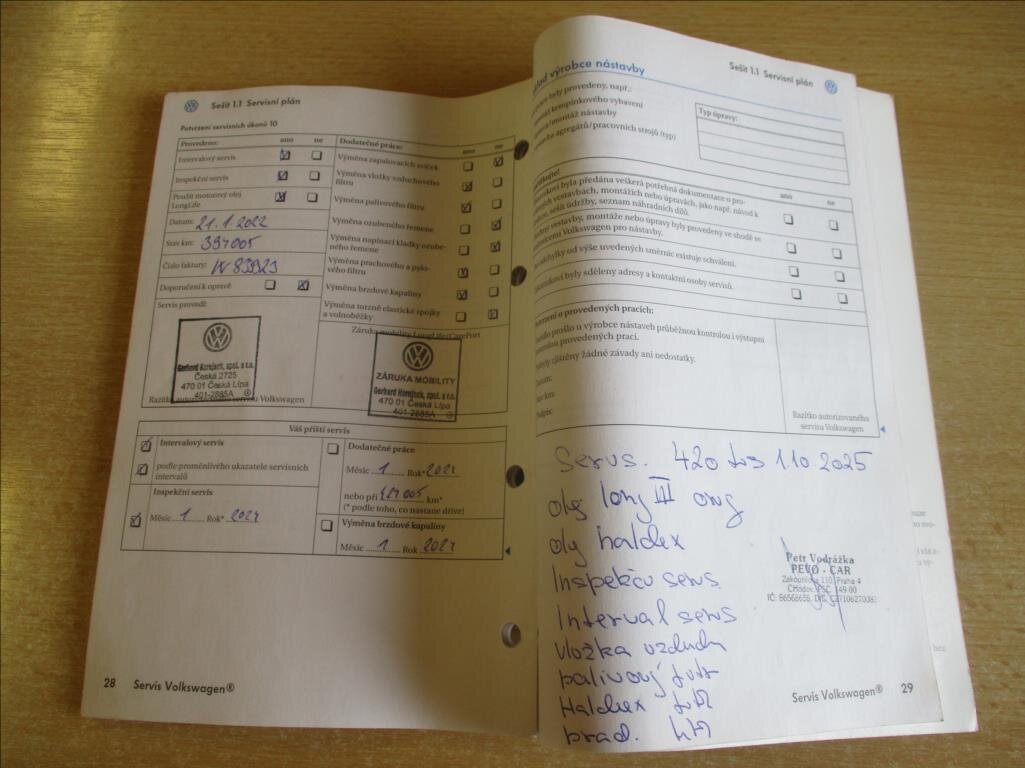 Sešit 1.1 Servisní plán
Potvrzení servisních úkonů 10
Provedeno: ano ne
Intervalový servis
Inspekční servis
Použit motorový olej
LongLife
Datum: 21.1.2022
Stav km: 394005
Číslo faktury: W 83923
Doporučení k opravě
Servis provedl:
Gerhard Horejsch, spol. s r.o.
Česká 2725
470 01 Česká Lípa
401-2885A
Razítko servisu Volkswagen
Dodatečné práce: ano ne
Výměna zapalovacích svíček
Výměna vložky vzduchového
filtru
Výměna palivového filtru
Výměna ozubeného řemene
Výměna napínací kladky ozube-
ného řemene
Výměna prachového a pylo-
vého filtru
Výměna brzdové kapaliny
Výměna torzně elastické spojky
a volnoběžky
Záruka mobility LongLife/CarePort
ZÁRUKA MOBILITY
Gerhard Horejsch, spol. s r.o.
470 01 Česká Lípa
401-2885A
Váš příští servis
Intervalový servis
podle proměnlivého ukazatele servisních
intervalů
Inspekční servis
Měsíc 1 Rok* 2024
Dodatečné práce
Měsíc 1 Rok*
nebo při km*
(* podle toho, co nastane dříve)
Výměna brzdové kapaliny
Měsíc 1 Rok 2024
28 Servis Volkswagen®
Sešit 1.1 Servisní plán
výrobce nástavby
byly provedeny, např.:
kempinkového vybavení
montáž nástavby
agregátů/pracovních strojů (typ)
Typ úpravy:
ano ne
byla předána veškerá potřebná dokumentace o pro-
vestavbách, montážích nebo úpravách, jako např. návod k
sešit údržby, seznam náhradních dílů.
vestavby, montáže nebo úpravy byly provedeny ve shodě se
Volkswagen pro nástavby.
od výše uvedených směrnic existuje schválení.
byly sděleny adresy a kontaktní osoby servisů.
o provedených pracích:
prošlo u výrobce nástaveb průběžnou kontrolou i výstupní
provedených prací.
zjištěny žádné závady ani nedostatky.
Datum:
km:
Razítko autorizovaného
servisu Volkswagen
Servis. 420 1.10.2025
olej long III
olej haldex
Inspekču servs
Interval servs
vložka vzduch
palivový
Haldex
Petr Vodrážka
PEVO - CAR
110, Praha 4
PSČ 149 00
Servis Volkswagen® 29